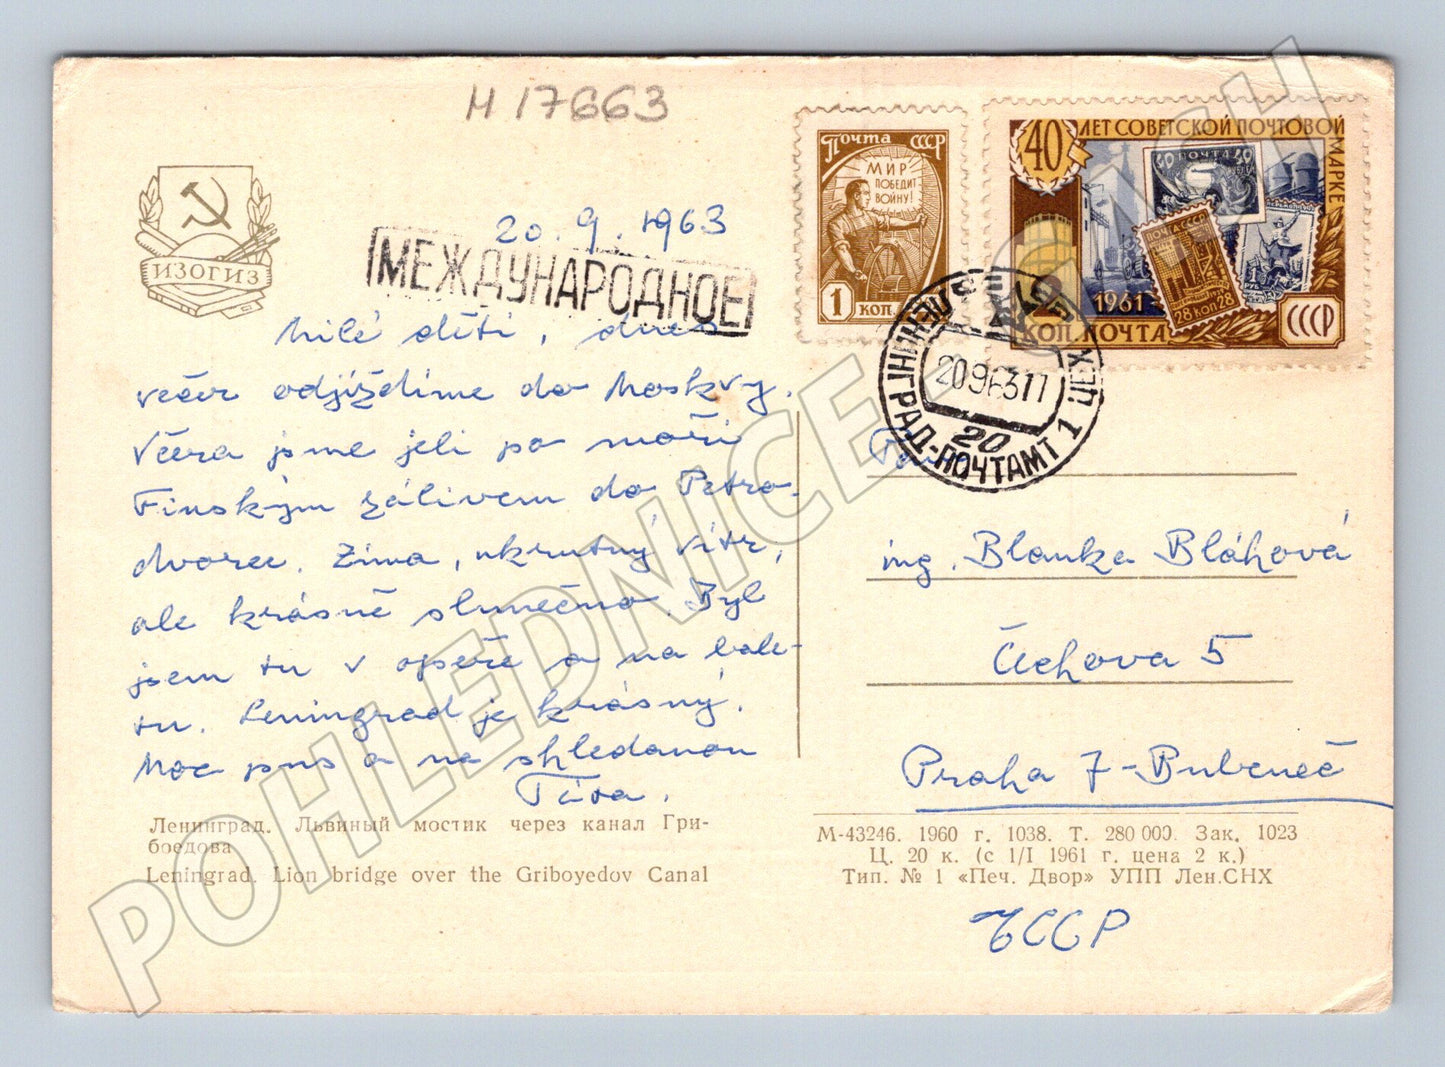 H 17663
ИЗОГИЗ
20. 9. 1963
МЕЖДУНАРОДНОЕ
Milé děti, dnes
večer odjíždíme do Moskvy.
Včera jsme jeli po moři
Finským zálivem do Petro-
dvorec. Zima, ukrutný vítr,
ale krásně slunečno. Byl
jsem tu v opeře a na bale-
tu. Leningrad je krásný.
Moc pus a na shledanou
Ленинград. Львиный мостик через канал Гри-
боедова
Leningrad. Lion bridge over the Griboyedov Canal
Почта СССР
МИР
ПОБЕДИТ
ВОЙНУ!
1 КОП.
40 ЛЕТ СОВЕТСКОЙ ПОЧТОВОЙ МАРКЕ
40 ПОЧТА 40
ПОЧТА СССР
28 КОП 28
1961
КОП. ПОЧТА
СССР
20 9 63 17
20
ЛЕНИНГРАД-ПОЧТАМТ 1
ing. Blanka Bláhová
Čechova 5
Praha 7-Bubeneč
М-43246. 1960 г. 1038. Т. 280 000. Зак. 1023
Ц. 20 к. (с 1/I 1961 г. цена 2 к.)
Тип. № 1 «Печ. Двор» УПП Лен.СНХ
ЧССР